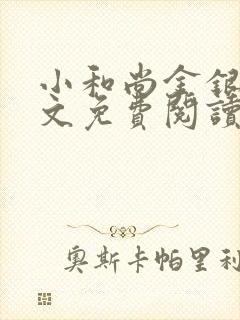 小和尚金银
文免費閱讀
奥斯卡帕里利